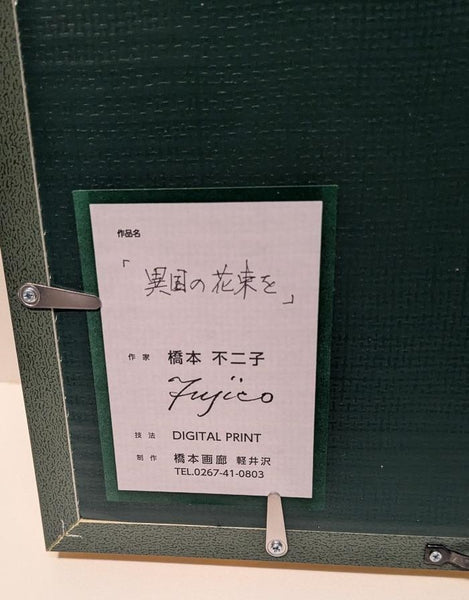 作品名
「異国の花束を」
作家 橋本 不二子
Fujico
技法 DIGITAL PRINT
制作 橋本画廊 軽井沢
TEL.0267-41-0803